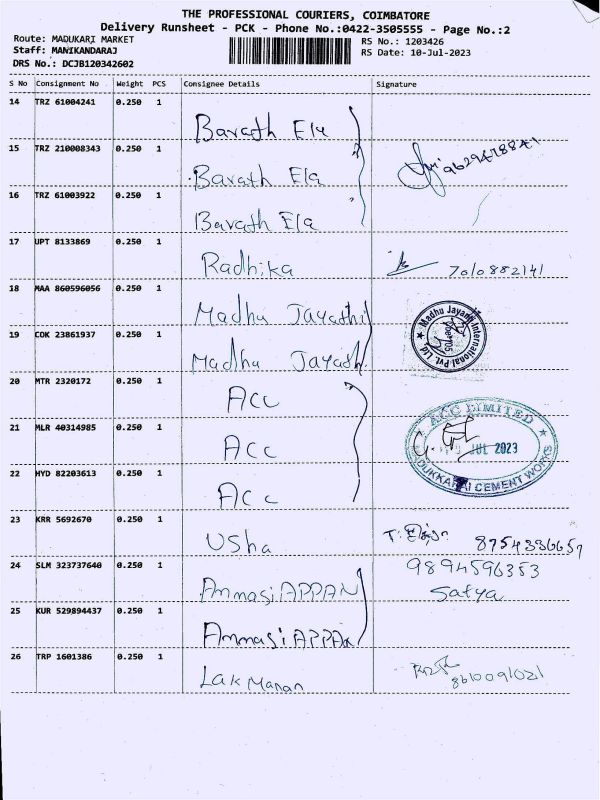 THE PROFESSIONAL COURIERS, COIMBATORE
Delivery Runsheet - PCK - Phone No.:0422-3505555 - Page No.:2
Route: MADUKARI MARKET RS No.: 1203426
Staff: MANIKANDARAJ RS Date: 10-Jul-2023
DRS No.: DCJB120342602
S No Consignment No Weight PCS Consignee Details Signature
14 TRZ 61004241 0.250 1 Barath Ela
15 TRZ 210008343 0.250 1 Barath Ela
16 TRZ 61003922 0.250 1 Barath Ela
17 UPT 8133869 0.250 1 Radhika 7010882141
18 MAA 860596056 0.250 1 Madhu Jayathi
19 COK 23861937 0.250 1 Madhu Jayath
Madhu Jayanti International Pvt. Ltd.
20 MTR 2320172 0.250 1 Acc
21 MLR 40314985 0.250 1 Acc
ACC LIMITED
JUL 2023
MADUKKARAI CEMENT WORKS
22 HYD 82203613 0.250 1 Acc
23 KRR 5692670 0.250 1 Usha 8754336657
24 SLM 323737640 0.250 1 AmmasiAPPAN 9894596353
Satya
25 KUR 529894437 0.250 1 AmmasiAPPAN
26 TRP 1601386 0.250 1 Lak Manan 8610091021